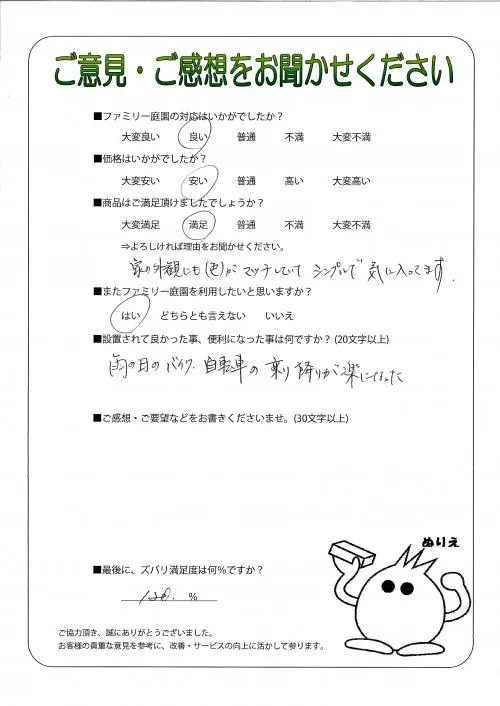 ご意見・ご感想をお聞かせください
■ファミリー庭園の対応はいかがでしたか？
大変良い 良い 普通 不満 大変不満
■価格はいかがでしたか？
大変安い 安い 普通 高い 大変高い
■商品はご満足頂けましたでしょうか？
大変満足 満足 普通 不満 大変不満
⇒よろしければ理由をお聞かせください。
家の外観にも(色)がマッチしていて シンプルで 気に入ってます.
■またファミリー庭園を利用したいと思いますか？
はい どちらとも言えない いいえ
■設置されて良かった事、便利になった事は何ですか？(20文字以上)
雨の日のバイク、自転車の 乗り降りが楽になった
■ご感想・ご要望などをお書きくださいませ。(30文字以上)
ぬりえ
■最後に、ズバリ満足度は何％ですか？
％
ご協力頂き、誠にありがとうございました。
お客様の貴重な意見を参考に、改善・サービスの向上に活かして参ります。